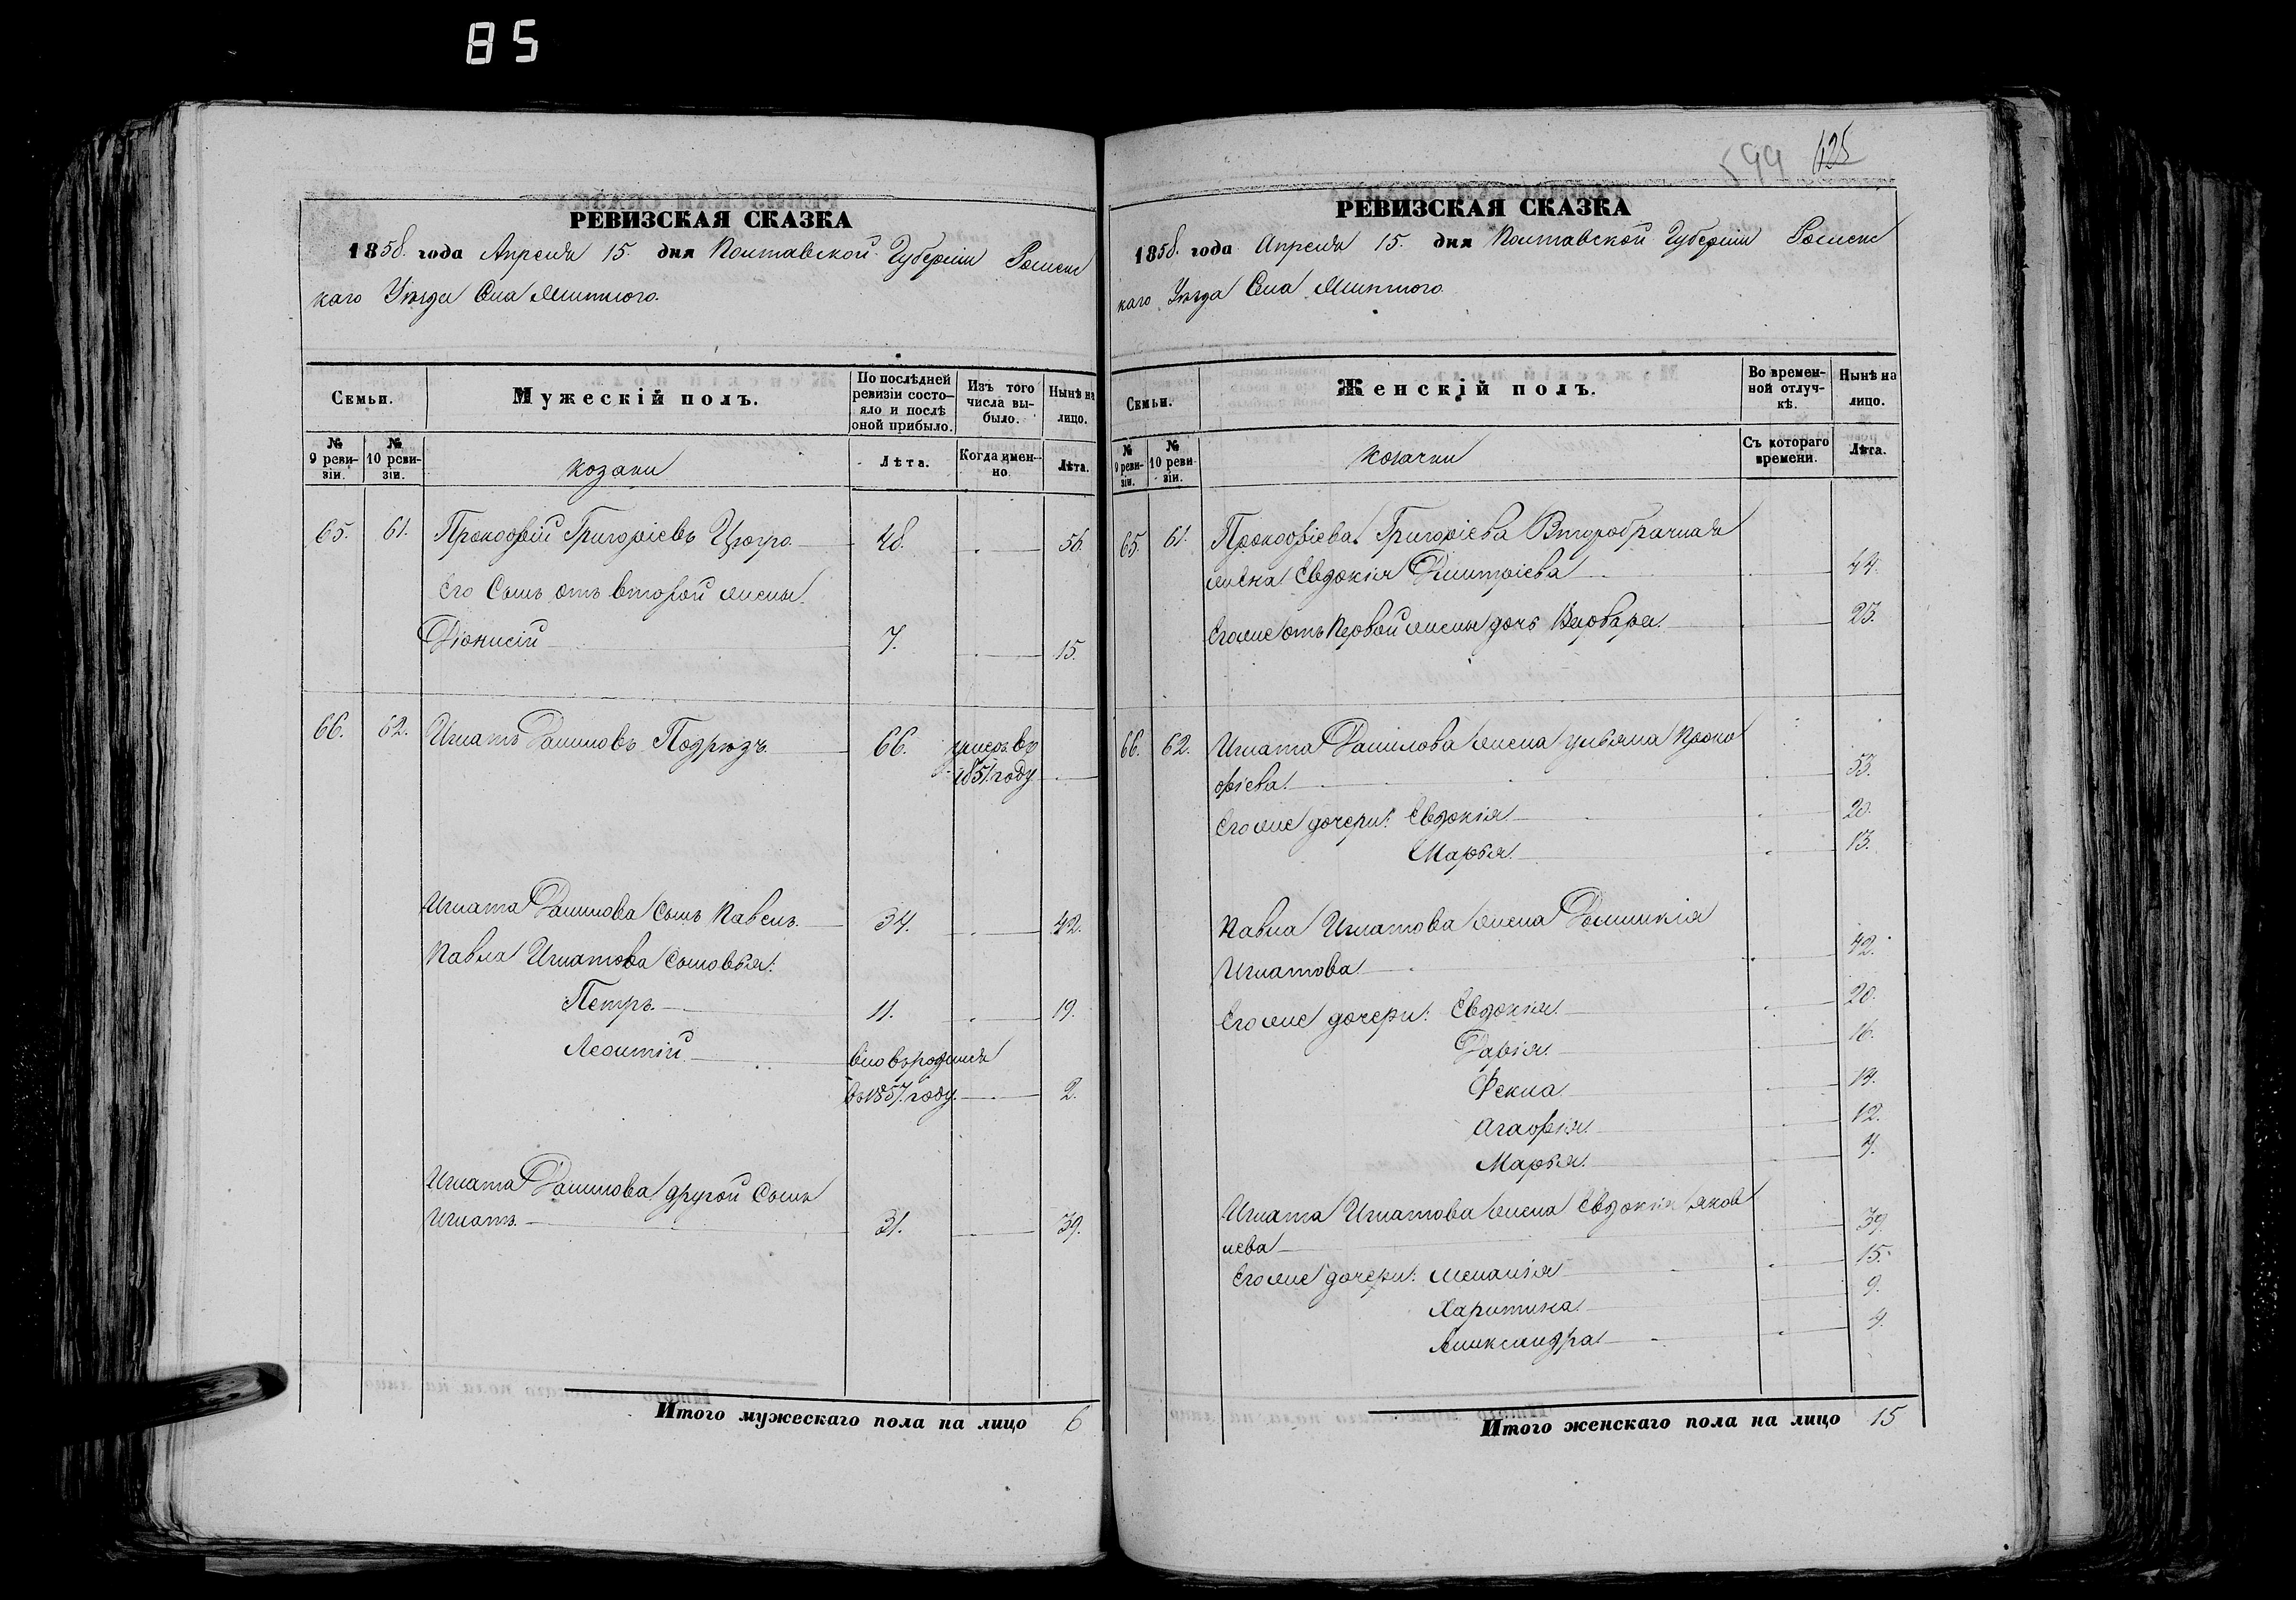 85
РЕВИЗСКАЯ СКАЗКА
1858. года Апреля 15. дня Полтавской Губерніи Роменс
каго Уѣзда Села
Семьи.
Мужескій полъ.
По послѣдней ревизіи состояло и послѣ оной прибыло.
Изъ того числа выбыло.
Нынѣ на лицо.
№ 9 ревизіи.
№ 10 ревизіи.
козаки
Лѣта.
Когда именно.
Лѣта.
65. 61. Прокофій Григоріевъ Цюпро 48. 56.
Его Сынъ отъ второй жены
Діонисій 7. 15.
66. 62. Игнатъ Даниловъ Подрѣзъ 66. умеръ въ
1851 году
Игната Данилова Сынъ Павелъ. 34. 42.
Павла Игнатова Сыновья:
Петръ. 11. 19.
Леонтій. вновь родился
въ 1857. году. 2.
Игната Данилова другой Сынъ
Игнатъ. 31. 39.
Итого мужескаго пола на лицо 6
599 625
РЕВИЗСКАЯ СКАЗКА
1858. года Апреля 15. дня Полтавской Губерніи Роменс
каго Уѣзда Села
Семьи.
Женскій полъ.
Во временной отлучкѣ.
Нынѣ на лицо.
№ 9 ревизіи.
№ 10 ревизіи.
козачки
Съ котораго времени.
Лѣта.
65. 61. Прокофіева Григоріева Второбрачная
жена Евдокія Дмитріева 44.
Егоже отъ Первой жены дочь Варвара. 23.
66. 62. Игната Данилова жена Ульяна Проко
фіева. 53.
Егоже дочери: Евдокія 20.
Марья. 13.
Павла Игнатова жена Домникія
Игнатова 42.
Егоже дочери: Евдокія. 20.
Дарія. 16.
Фекла 14.
Агафія. 12.
Марья. 4.
Игната Игнатова жена Евдокія Яков
лева 39.
Егоже дочери: Меланія 15.
Харитина. 9.
Александра 4.
Итого женскаго пола на лицо 15